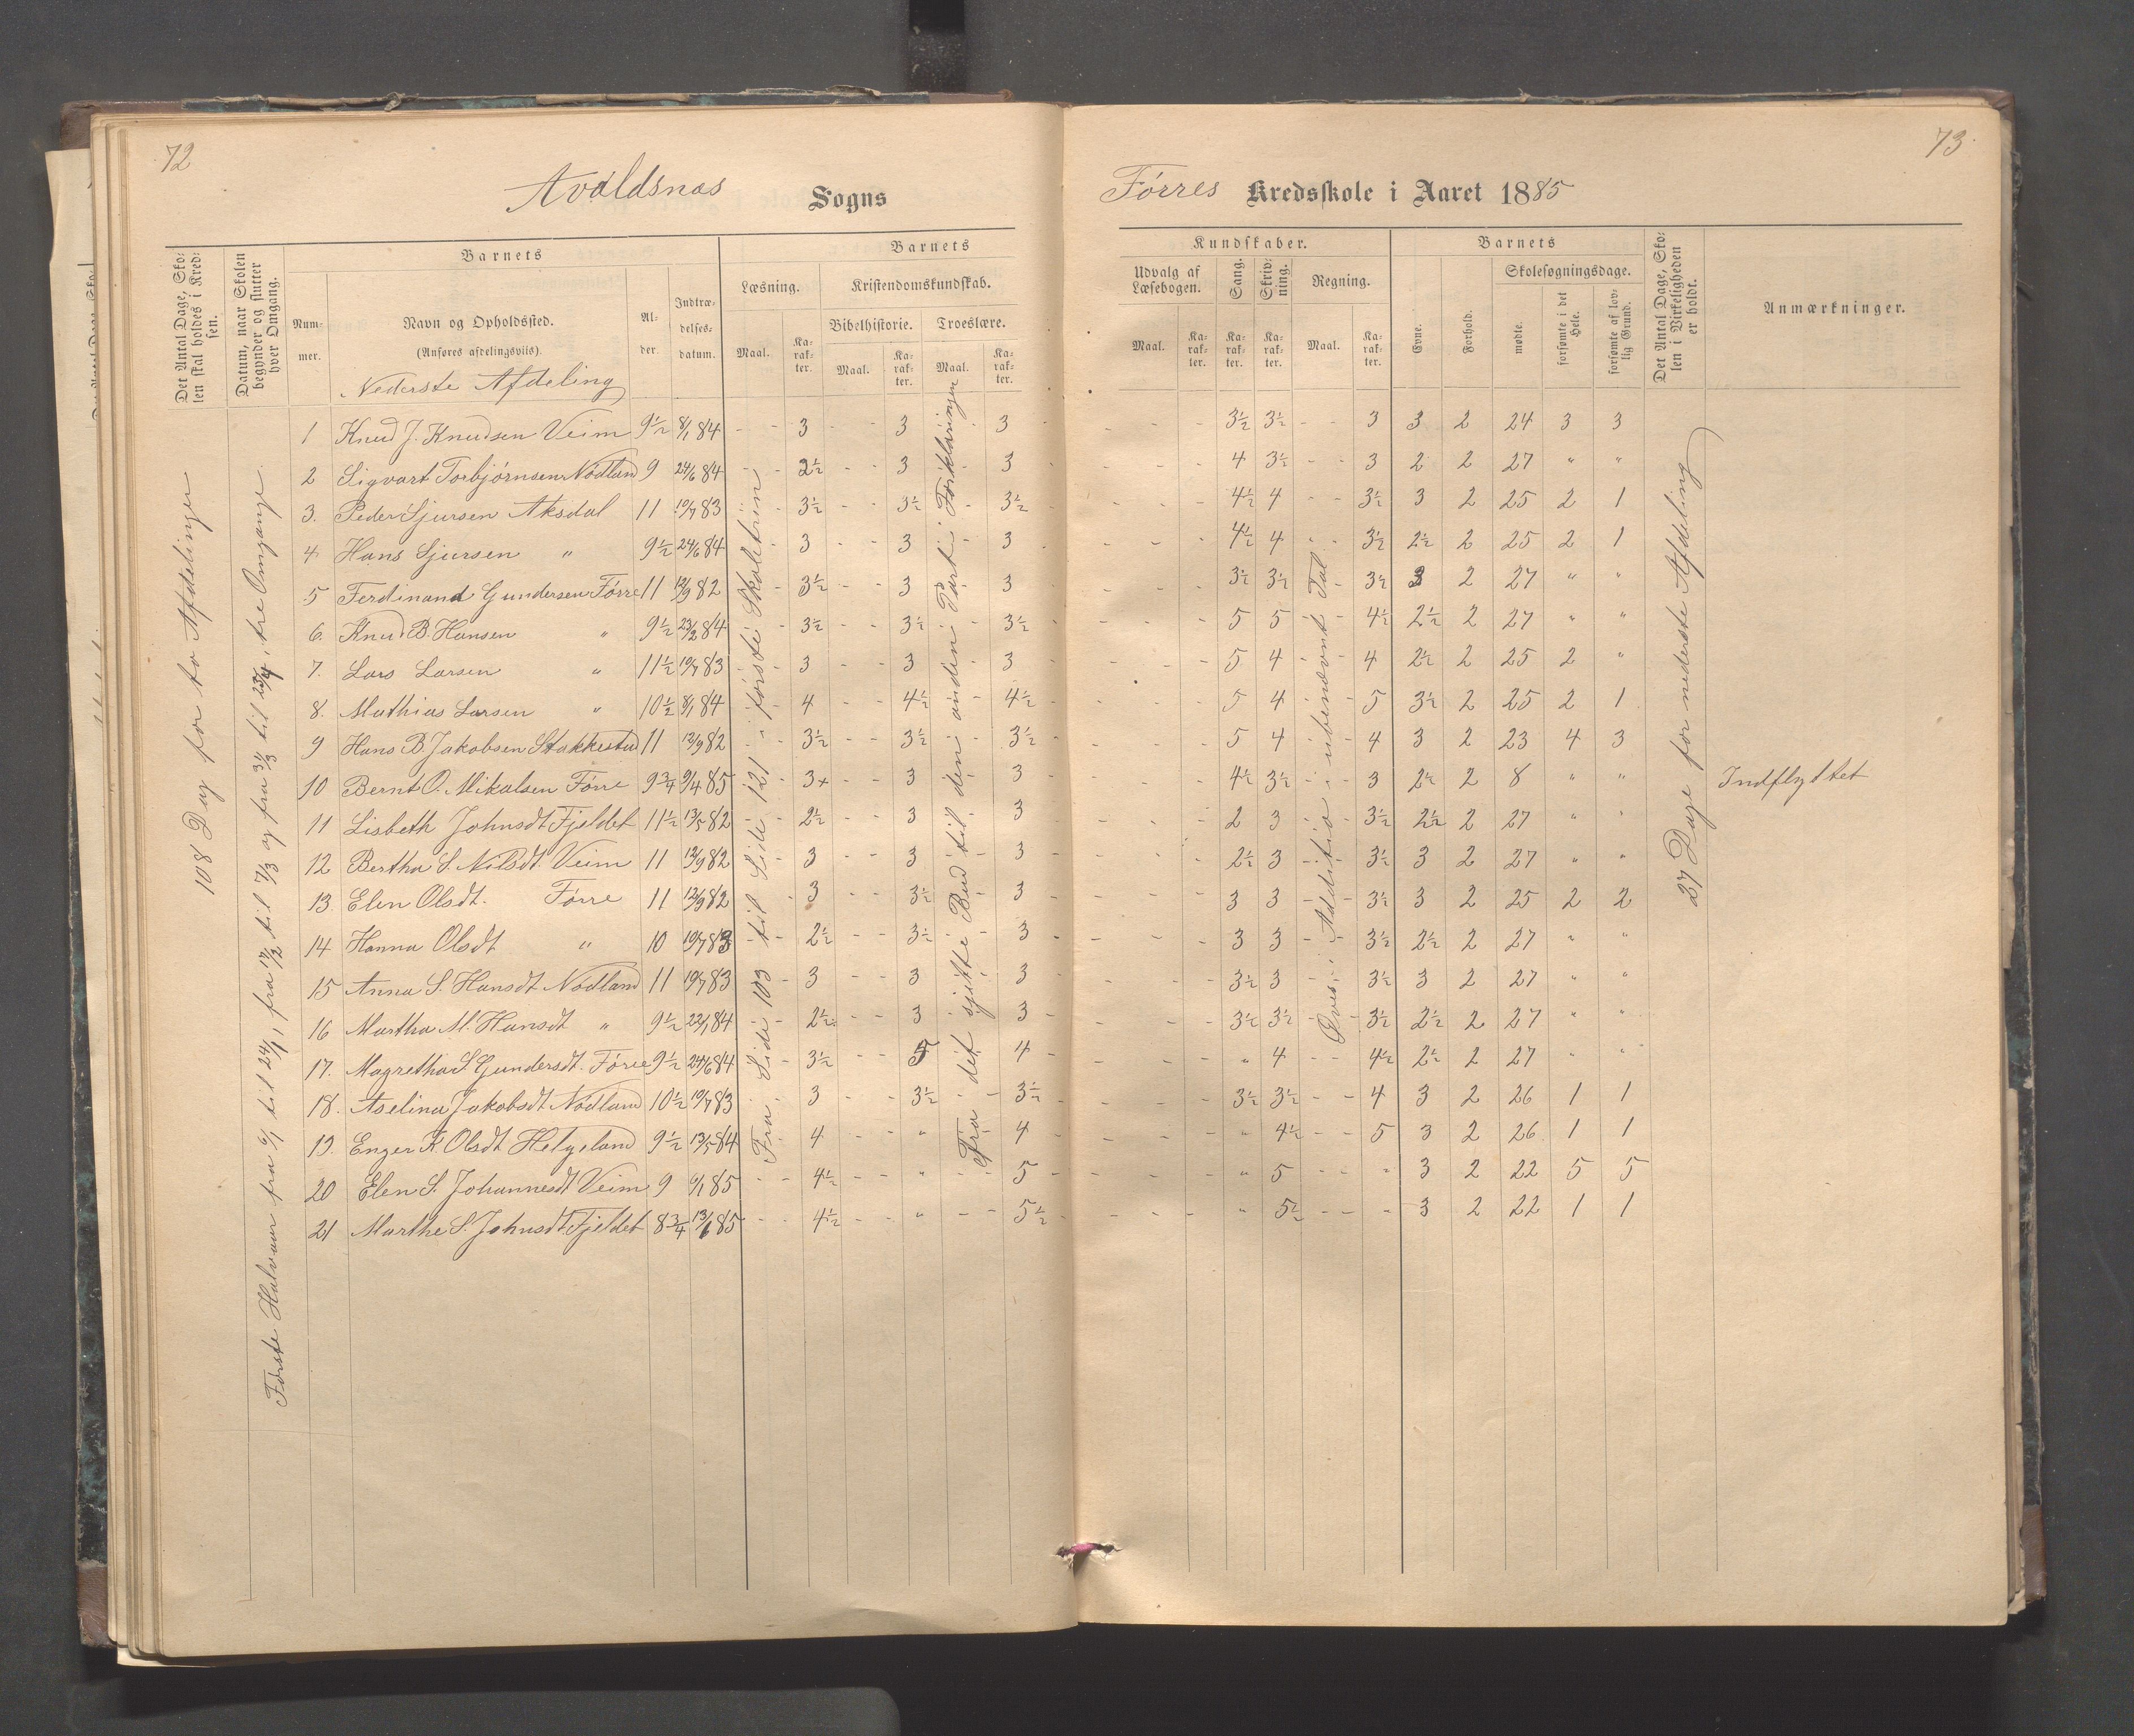 72
Avaldsnæs Sogns
Det Antal Dage, Skolen skal holdes i Kredsen.
Datum, naar Skolen begynder og slutter hver Omgang.
Barnets
Nummer.
Navn og Opholdssted.
(Anføres afdelingsviis).
Alder.
Indtrædelsesdatum.
Barnets
Læsning.
Kristendomskundskab.
Bibelhistorie.
Troeslære.
Maal.
Karakter.
Maal.
Karakter.
Maal.
Karakter.
Nederste Afdeling
108 Dag for to Afdelinger
Første Halvaar fra 6/1 til 24/1, fra 17/2 til 7/3 og fra 31/3 til 23/4, tre Omgange.
Fra Side 103 til Side 121 i første Skoletrin
Fra det sjette Bud til den anden Part i Forklaringen
1 Knud J. Knudsen Veim 9 1/2 8/1 84 - - 3 - - 3 3
2 Sigvart Torbjørnsen Nødland 9 24/6 84 - - 2 1/2 - - 3 - 3
3. Peder Sjursen Aksdal 11 19/7 83 - - 3 1/2 - - 3 1/2 - 3 1/2
4 Hans Sjursen " 9 1/2 24/6 84 - 3 - - 3 - 3
5 Ferdinand Gundersen Førre 11 12/9 82 - 3 1/2 - - 3 - 3
6. Knud B. Hansen " 9 1/2 23/2 84 - 3 1/2 - - 3 1/2 - - 3 1/2
7. Lars Larsen " 11 1/2 19/7 83 - - 3 - - 3 - 3
8. Mathias Larsen " 10 1/2 8/1 84 - 4 - - 4 1/2 - 4 1/2
9 Hans B. Jakobsen Stakkestad 11 12/9 82 - - 3 1/2 - - 3 1/2 - 3 1/2
10 Bernt O. Mikalsen Førre 9 3/4 9/4 85 - 3+ - - 3 3
11 Lisbeth Johnsdt Fjeldet 11 1/2 13/5 82 - - 2 1/2 - - 3 - 3
12 Bertha S. Nilsdt. Veim 11 12/9 82 - - 3 - - 3 - 3
13. Elen Olsdt. Førre 11 12/9 82 - 3 - - 3 1/2 - 3
14 Hanna Olsdt " 10 19/7 83 - - 2 1/2 - - 3 1/2 - 3
15 Anna S. Hansdt Nødland 11 19/7 83 - 3 - - 3 3
16 Martha M. Hansdt " 9 1/2 22/1 84 - - 2 1/2 - - 3 - 3
17. Magretha S. Gundersdt. Førre 9 1/2 24/6 84 - 3 1/2 - - 5 4
18. Aselina Jakobsdt Nødland 10 1/2 19/7 83 - - 3 - - 3 1/2 - - 3 1/2
19. Enger K. Olsdt Helgeland 9 1/2 13/5 84 - 4 - - " - 4
20 Elen S. Johannesdt Veim 9 6/1 85 - - 4 1/2 - - " - - 5
21 Marthe S. Johnsdt. Fjeldet 8 3/4 13/1 85 - - 4 1/2 - - " - - 5 1/2
73.
Førres Kredsskole i Aaret 1885
Kundskaber.
Udvalg af Læsebogen.
Sang.
Skrivning.
Regning.
Maal.
Karakter.
Karakter.
Karakter.
Maal.
Karakter.
Barnets
Evne.
Forhold.
Skolesøgningsdage.
mødte.
forsømte i det Hele.
forsømte af lovlig Grund.
Det Antal Dage, Skolen i Virkeligheden er holdt.
Anmærkninger.
Øves i Additio i ubenævnt Tal
27 Dage for nederste Afdeling
- - - 3 1/2 3 1/2 - - 3 3 2 24 3 3
- - - 4 3 1/2 - - 3 2 2 27 " "
- - - 4 1/2 4 - - 3 1/2 3 2 25 2 1
- - - 4 1/2 4 - - 3 1/2 2 1/2 2 25 2 1
- - - 3 1/2 3 1/2 - 3 1/2 3 2 27 " "
- - - 5 5 - - 4 1/2 2 1/2 2 27 " "
- - - 5 4 - - 4 2 1/2 2 25 2 "
- - - 5 4 - 5 3 1/2 2 25 2 1
- - - 5 4 - - 4 3 2 23 4 3
- - - 4 1/2 3 1/2 - - 3 2 1/2 2 8 " " Indflyttet
- - - 2 3 - - 3 1/2 2 1/2 2 27 " "
- - - 2 1/2 3 - - 3 1/2 3 2 27 " "
- - - 3 3 - - 3 1/2 3 2 25 2 2
- - - 3 3 - - 3 1/2 2 1/2 2 27 " "
- - - 3 1/2 3 - 3 1/2 3 2 27 " "
- - - 3 1/2 3 1/2 - - 3 1/2 2 1/2 2 27 " "
- - - " 4 - - 4 1/2 2 1/2 2 27 " "
- - - 3 1/2 3 1/2 - - 4 3 2 26 1 1
- - - " 4 1/2 - - 5 3 2 26 1 1
- - - " 5 - - " 3 2 22 5 5
- - - " 5 1/2 - - " 3 2 22 1 1